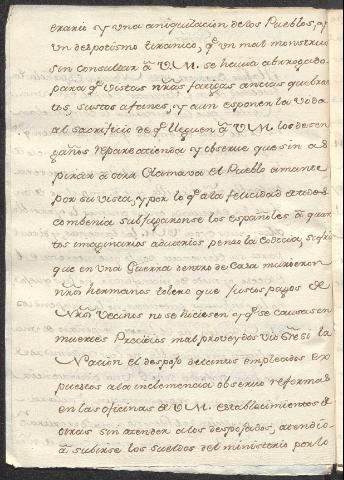 erario y una aniquilacion de los Pueblos, y
un despotismo tiranico, qe un mal monstruo
sin consultar â V.M. se havia abrrogado
para qe vistas nr̃as fatigas ancias quebran
tos, sustos afanes, y aun esponer la vida
al sacrificio de qe lleguen â V.M. los desen
gaños repare atienda y observe que sin as
pirar â otra Clamava el Pueblo amante
por su vista, y por lo qe a la felicidad
combenia subfugaronse los españoles â quan
tos imaginarios aduarios penso la Codicia, sufrio
que en una Guerra dentro de Casa murieron
nr̃os hermanos tolero que justos pagos de
Nr̃os Vecinos no se hiciesen y qe se causasen
muertes Precidios mal proveydos vio la
Nacion el despojo de tantos empleados ex
puestos a la inclemencia observo reformas
en las oficinas de V.M. establecimientos de
otras sin atender a los despojados, atendio
â subirse los sueldos del ministerio por lo